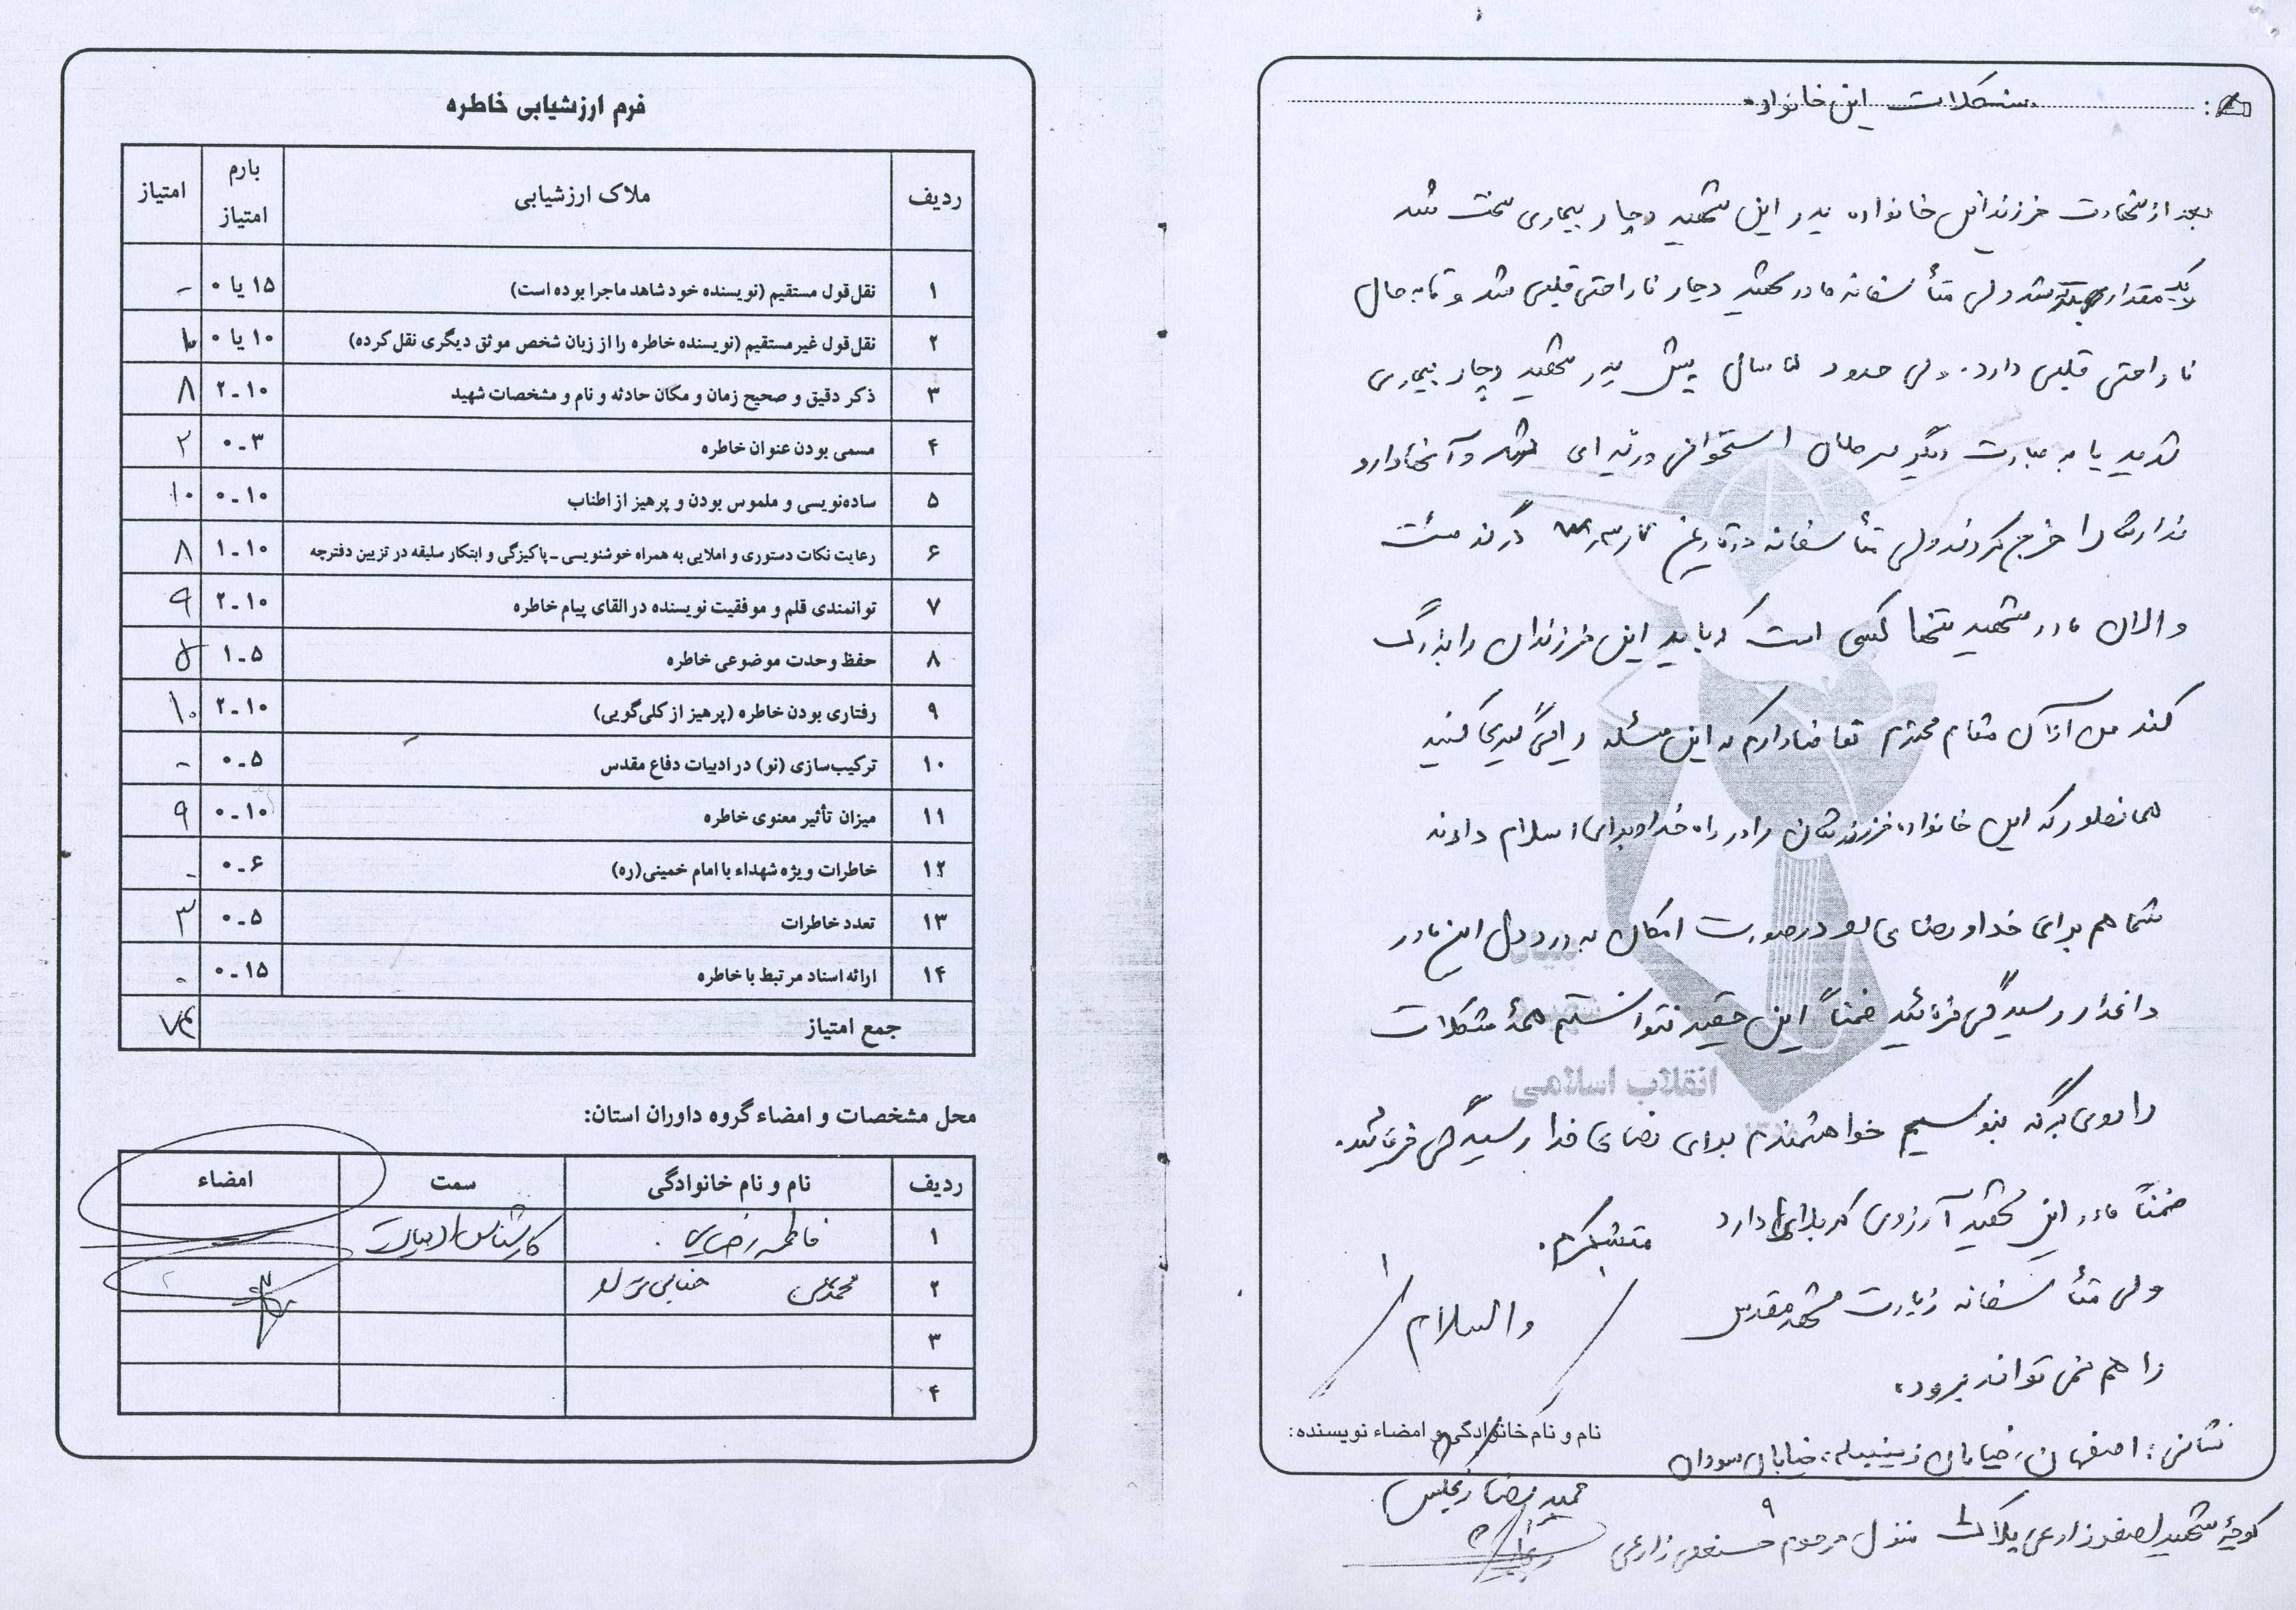 مشکلات این خانواده
بعد از شهادت فرزند این خانواده پدر این شهید دچار بیماری سخت شد
یک مقداری بهتر شد ولی متأسفانه مادر شهید دچار ناراحتی قلبی شد و تا به حال
ناراحتی قلبی دارد. ولی حدود سال پیش پدر شهید دچار بیماری
شدید یا به عبارت دیگر سرطان استخوان و ریه ای شد و آنها دارو
ندارشان را خرج کردند ولی متأسفانه در تاریخ درگذشت
و الان مادر شهید تنها کسی است که باید این فرزندان را بزرگ
کند من از آن مقام محترم تقاضا دارم که این مسئله را پیگیری کنید
همانطور که این خانواده فرزندشان را در راه خدا و برای اسلام دادند
شما هم برای خدا و رضای او در صورت امکان به درد دل این مادر
داغدار رسیدگی فرمائید ضمناً این حقیر نتوانستم همهٔ مشکلات
را روی برگه بنویسیم خواهشمندم برای رضای خدا رسیدگی فرمائید.
ضمناً مادر این شهید آرزوی کربلا را دارد متشکرم.
ولی متأسفانه زیارت مشهد مقدس والسلام
را هم نمی تواند برود.
نام و نام خانوادگی و امضاء نویسنده:
نشانی: اصفهان، خیابان زینبیه، خیابان سودان
حمیدرضا
کوچهٔ شهید زارعی پلاک ۹ منزل مرحوم زارعی
فرم ارزشیابی خاطره
ردیف ملاک ارزشیابی بارم امتیاز امتیاز
۱ نقل‌قول مستقیم (نویسنده خود شاهد ماجرا بوده است) ۱۵ یا ۰ -
۲ نقل‌قول غیرمستقیم (نویسنده خاطره را از زبان شخص موثق دیگری نقل کرده) ۱۰ یا ۰ ۱۰
۳ ذکر دقیق و صحیح زمان و مکان حادثه و نام و مشخصات شهید ۱۰-۲ ۸
۴ مسمی بودن عنوان خاطره ۳-۰ ۲
۵ ساده‌نویسی و ملموس بودن و پرهیز از اطناب ۱۰-۰ ۱۰
۶ رعایت نکات دستوری و املایی به همراه خوشنویسی - پاکیزگی و ابتکار سلیقه در تزیین دفترچه ۱۰-۱ ۸
۷ توانمندی قلم و موفقیت نویسنده در القای پیام خاطره ۱۰-۲ ۹
۸ حفظ وحدت موضوعی خاطره ۵-۱ ۵
۹ رفتاری بودن خاطره (پرهیز از کلی‌گویی) ۱۰-۲ ۱۰
۱۰ ترکیب‌سازی (نو) در ادبیات دفاع مقدس ۵-۰ -
۱۱ میزان تأثیر معنوی خاطره ۱۰-۰ ۹
۱۲ خاطرات ویژه شهداء با امام خمینی (ره) ۶-۰ -
۱۳ تعدد خاطرات ۵-۰ ۳
۱۴ ارائه اسناد مرتبط با خاطره ۱۵-۰ -
جمع امتیاز ۷۴
محل مشخصات و امضاء گروه داوران استان:
ردیف نام و نام خانوادگی سمت امضاء
۱ فاطمه رضایی کارشناس ادبیات
۲
۳
۴